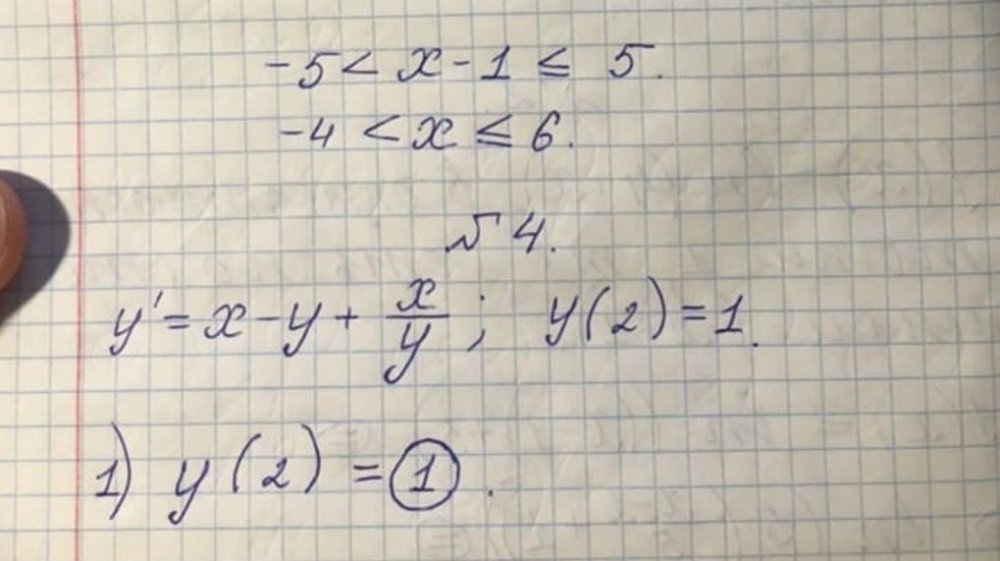 -5 < x - 1 ≤ 5.
-4 < x ≤ 6.
№ 4.
y' = x - y + x/y ; y(2) = 1.
1) y(2) = 1.